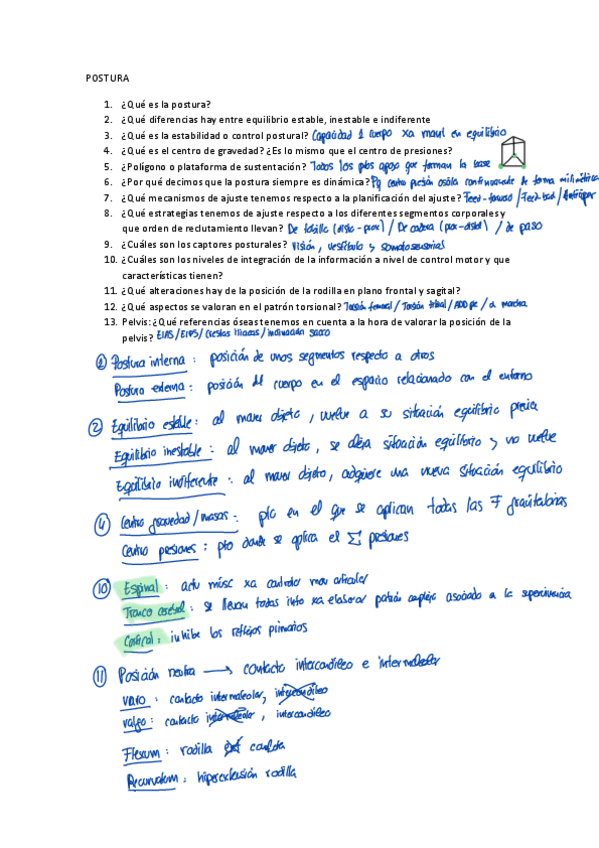 POSTURA
1. ¿Qué es la postura?
2. ¿Qué diferencias hay entre equilibrio estable, inestable e indiferente
3. ¿Qué es la estabilidad o control postural? Capacidad d cuerpo xa mant en equilibrio
4. ¿Qué es el centro de gravedad? ¿Es lo mismo que el centro de presiones?
5. ¿Polígono o plataforma de sustentación? Todos los ptos apoyo que forman la base
6. ¿Por qué decimos que la postura siempre es dinámica? Pq centro presión oscila continuamente de forma milimétrica
7. ¿Qué mecanismos de ajuste tenemos respecto a la planificación del ajuste? Feed-forward / Feed-back / Anticipar
8. ¿Qué estrategias tenemos de ajuste respecto a los diferentes segmentos corporales y
que orden de reclutamiento llevan? De tobillo (dist-prox) / De cadera (prox-distal) / de paso
9. ¿Cuáles son los captores posturales? Visión, vestíbulo y somatosensorias
10. ¿Cuáles son los niveles de integración de la información a nivel de control motor y que
características tienen?
11. ¿Qué alteraciones hay de la posición de la rodilla en plano frontal y sagital?
12. ¿Qué aspectos se valoran en el patrón torsional? Torsión femoral / Torsión tibial / ADD pie / α marcha
13. Pelvis: ¿Qué referencias óseas tenemos en cuenta a la hora de valorar la posición de la
pelvis? EIAS / EIPS / Crestas iliacas / inclinación sacro
① Postura interna : posición de unos segmentos respecto a otros
Postura externa : posición del cuerpo en el espacio relacionado con el entorno
② Equilibrio estable : al mover objeto, vuelve a su situación equilibrio previa
Equilibrio inestable : al mover objeto, se aleja situación equilibrio y no vuelve
Equilibrio indiferente : al mover objeto, adquiere una nueva situación equilibrio
④ Centro gravedad / masas : pto en el que se aplican todas las F gravitatorias
Centro presiones : pto donde se aplica el Σ presiones
⑩ Espinal : actv músc xa controlar mov articular
Tronco cerebral : se llevan todas info xa elaborar patrón complejo asociado a la supervivencia
Cortical : inhibe los reflejos primarios
⑪ Posición neutra → contacto intercondíleo e intermaleolar
varo : contacto intermaleolar, intercondíleo
valgo : contacto intermaleolar, intercondíleo
Flexum : rodilla
Recurvatum : hiperextensión rodilla